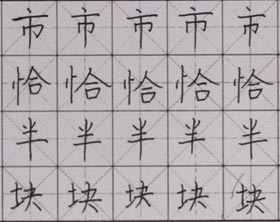 市市市市市
恰恰恰恰恰
半半半半半
块块块块块